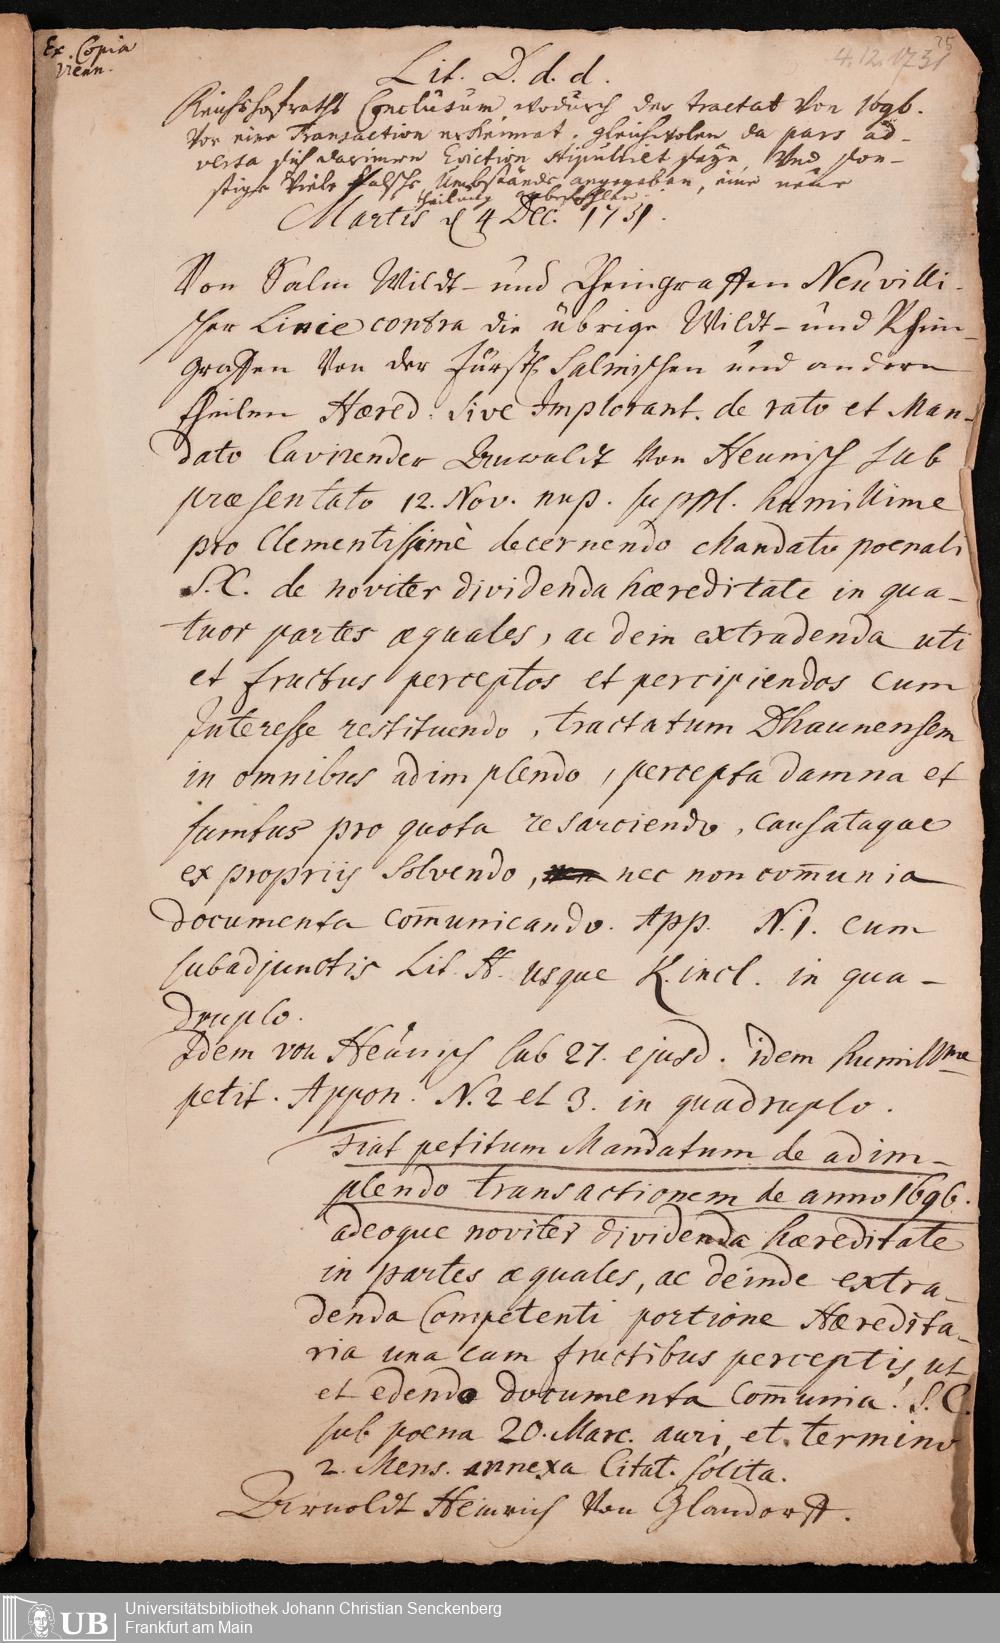 Ex Copia
Vienn.
25
4.12.1731
Lit. D. d. d.
Reichshofraths Conclusum, wodurch der tractat von 1696.
vor eine Transaction erkennet. gleichwolen da pars ad-
versa sich darinnen Eviction stipuliret seye, und son-
stige viele falsche Umbstände angegeben, eine neue
theilung anbefohlen
Martis d 4 Dec. 1731.
Von Salm Wildt- und Rheingraffen Neuvilli-
scher Linie contra die übrige Wildt- und Rhein-
graffen von der Fürstl. Salmischen und andern
theilen Hæred. sive Implorant. de rato et Man-
dato cavirender Anwaldt von Heunisch sub
præsentato 12. Nov. nup. suppl. humillime
pro Clementissimè decernendo Mandato poenali
S.C. de noviter dividenda hæreditate in qua-
tuor partes æquales, ac dein extradenda uti
et fructus perceptos et percipiendos cum
Interesse restituendo, tractatum Dhaunensem
in omnibus adimplendo, percepta damna et
sumtus pro quota resarciendo, causataque
ex propriis solvendo, nec non com̅unia
documenta com̅unicando. App. N. 1. cum
subadjunctis Lit. A. usque K. incl. in qua-
druplo.
Idem von Heünisch sub 27. ejusd. idem humillme
petit. Appon. N. 2 et 3. in quadruplo.
Fiat petitum Mandatum de adim-
plendo transactionem de anno 1696.
adeoque noviter dividenda hæreditate
in partes æquales, ac deinde extra-
denda Competenti portione Hæredita-
ria una cum fructibus perceptis, ut
et edendo documenta Com̅unia. S. C.
sub poena 20. Marc. auri, et termino
2. Mens. annexa Citat. solita.
Arnoldt Heinrich von Glandorff.
UB
Universitätsbibliothek Johann Christian Senckenberg
Frankfurt am Main